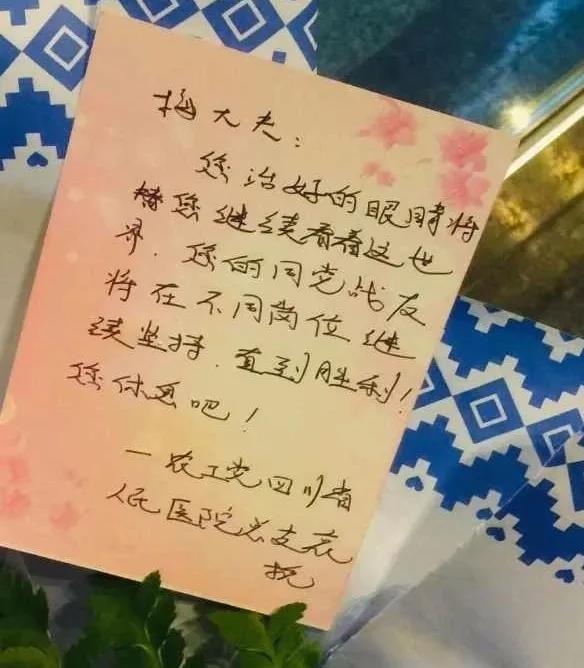 梅大夫：
您治好的眼睛将
替您继续看着这世
界．您的同党战友
将在不同岗位继
续坚持．直到胜利！
您休息吧！
一农工党四川省
人民医院总支衣
挽